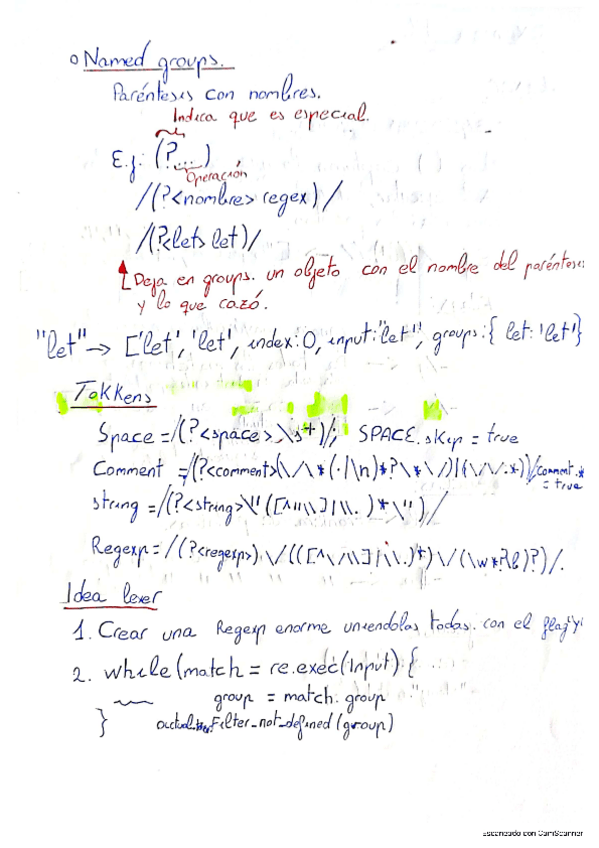 o Named groups.
Paréntesis con nombres.
Indica que es especial.
E.j: (?...)
Operación
/(?<nombre> regex)/
/(?<let> let)/
Deja en groups. un objeto con el nombre del paréntesis
y lo que cazó.
"let" → ['let', 'let', index:0, input:"let", groups:{ let: 'let'}
ToKKens
Space = /(?<space> \s+)/; SPACE.skip = true
Comment = /(?<comment>(\/\*(.|\n)*?\*\/)|(\/\/.*))/ comment.*
= true
string = /(?<string>\"([^"\\]|\\.)*\")/
Regexp = /(?<regexp>) \/(([^\/\\]|\\.)*)\/(\w*?)/.
Idea lexer
1. Crear una Regexp enorme uniendolas todas. con el flag 'y'
2. while (match = re.exec(input) {
group = match. group
} Filter_not_defined (group)
Escaneado con CamScanner